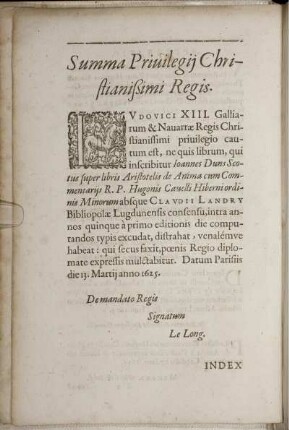 Summa Priuilegij Chri-
stianißimi Regis.
LVDOVICI XIII. Galliæ
rum & Nauarræ Regis Chri-
stianissimi priuilegio cau-
tum est, ne quis librum, qui
inscribitur Ioannes Duns Sco-
tus super libris Aristotelis de Anima cum Com-
mentarijs R. P. Hugonis Cauelli Hiberni ordi-
nis Minorum absque CLAVDII LANDRY
Bibliopolæ Lugdunensis consensu, intra an-
nos quinque à primo editionis die compu-
tandos typis excudat, distrahat, venalémve
habeat: qui secus faxit, pœnis Regio diplo-
mate expressis mulctabitur. Datum Parisiis
die 13. Martij anno 1625.
De mandato Regis
Signatum
Le Long.
INDEX